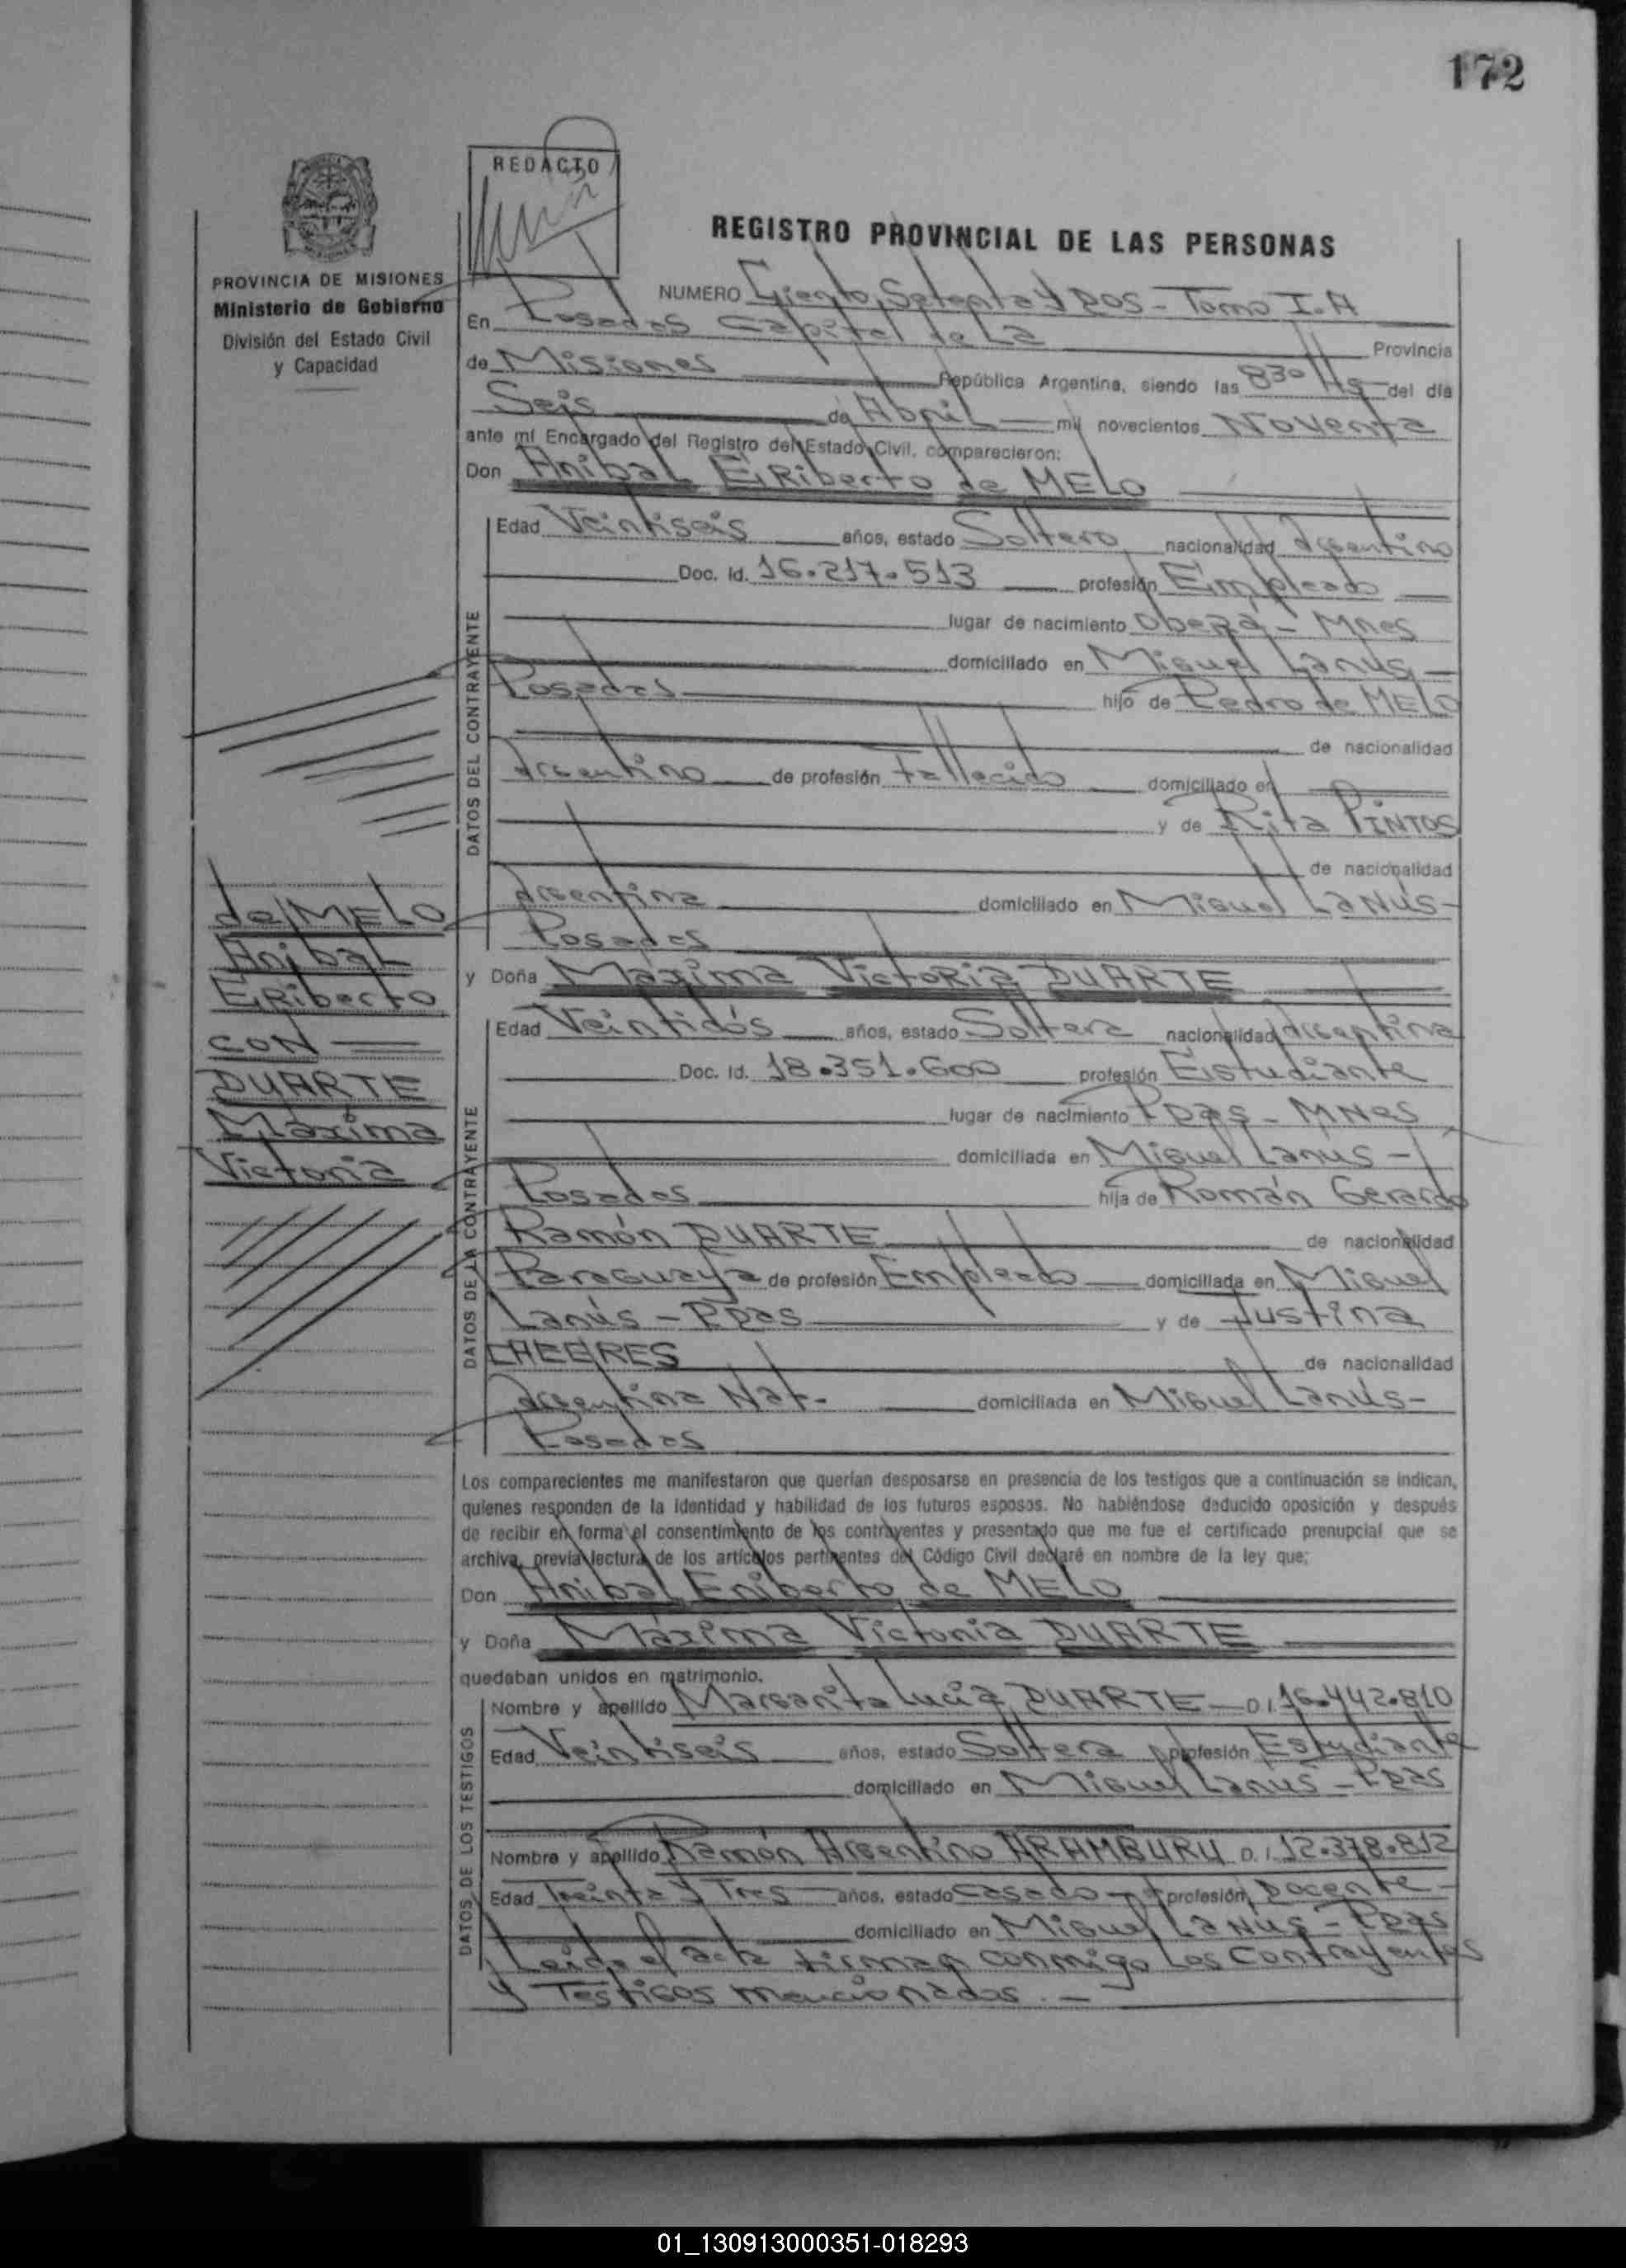 172
REDACTO
REGISTRO PROVINCIAL DE LAS PERSONAS
PROVINCIA DE MISIONES
Ministerio de Gobierno
División del Estado Civil
y Capacidad
NUMERO Ciento Setenta y DOS - Tomo I. A
En Posadas Capital de La Provincia
de Misiones República Argentina, siendo las 8³⁰ Hs del día
Seis de Abril mil novecientos Noventa
ante mí Encargado del Registro del Estado Civil, comparecieron:
Don Anibal ERiberto de MELO
DATOS DEL CONTRAYENTE
Edad Veintiseis años, estado Soltero nacionalidad Argentino
Doc. Id. 16.217.513 profesión Empleado
lugar de nacimiento Oberá - Mnes
domiciliado en Miguel Lanus -
Posadas hijo de Pedro de MELO
de nacionalidad
Argentino de profesión Fallecido domiciliado en
y de Rita PINTOS
de nacionalidad
Argentina domiciliado en Miguel LaNús -
Posadas
de MELO
Anibal
ERiberto
CON
DUARTE
Máxima
Victoria
y Doña Máxima VictoRia DUARTE
DATOS DE LA CONTRAYENTE
Edad Veintidós años, estado Soltera nacionalidad Argentina
Doc. Id. 18.351.600 profesión Estudiante
lugar de nacimiento Pdas - MNes
domiciliada en Miguel Lanus -
Posadas hija de Román Gerardo
Ramón DUARTE de nacionalidad
Paraguaya de profesión Empleado domiciliada en Miguel
Lanús - Pdas y de Justina
de nacionalidad
Argentina Nat. domiciliada en Miguel Lanús -
Posadas
Los comparecientes me manifestaron que querían desposarse en presencia de los testigos que a continuación se indican,
quienes responden de la identidad y habilidad de los futuros esposos. No habiéndose deducido oposición y después
de recibir en forma el consentimiento de los contrayentes y presentado que me fue el certificado prenupcial que se
archiva, previa lectura de los artículos pertinentes del Código Civil declaré en nombre de la ley que;
Don Anibal Eriberto de MELO
y Doña Máxima Victoria DUARTE
quedaban unidos en matrimonio.
DATOS DE LOS TESTIGOS
Nombre y apellido Margarita Lucia DUARTE - D.I. 16.442.810
Edad Veintiseis años, estado Soltera profesión Estudiante
domiciliado en Miguel Lanus - Pdas
Nombre y apellido Ramón Argentino ARAMBURU D.I. 12.378.812
Edad Treinta y Tres años, estado Casado profesión Docente -
domiciliado en Miguel LaNus - Pdas
Leida el acta firman conmigo Los Contrayentes
y Testigos mencionados. -
01_130913000351-018293